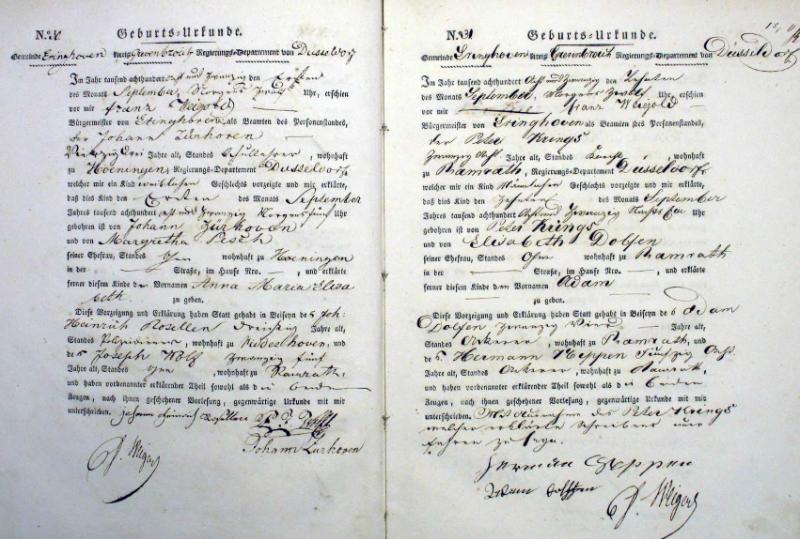 Geburts-Urkunde.
Gemeinde Kreis Grevenbroich Regierungs-Departement von Düsseldorf
Im Jahr tausend achthundert acht und zwanzig den Ersten
des Monats September Morgens Uhr, erschien
vor mir Franz Weigold
Bürgermeister von als Beamten des Personenstandes,
der Johann Zurhoven
Vierzig drei Jahre alt, Standes Schullehrer, wohnhaft
zu Hoeningen Regierungs-Departement Düsseldorf
welcher mir ein Kind weiblichen Geschlechts vorzeigte und mir erklärte,
daß dies Kind den Ersten des Monats September
Jahres tausend achthundert acht und zwanzig Morgens fünf Uhr
gebohren ist von Johann Zurhoven
und von Margretha Pesch
seiner Ehefrau, Standes wohnhaft zu Hoeningen
in der Straße, im Hause Nro. , und erklärte
ferner diesem Kinde den Vornamen Anna Maria Elisa
beth zu geben.
Diese Vorzeigung und Erklärung haben Statt gehabt in Beiseyn des Joh:
Heinrich Rosellen Dreißig Jahre alt,
Standes , wohnhaft zu , und
des Joseph Wolf zwanzig fünf
Jahre alt, Standes , wohnhaft zu Ramrath
und haben vorbenannter erklärender Theil sowohl als die beiden
Zeugen, nach ihnen geschehener Vorlesung, gegenwärtige Urkunde mit mir
unterschrieben. Johann Heinrich Rosellen
Johann Zurhoven
F. Weigold
Geburts-Urkunde.
Gemeinde Kreis Grevenbroich Regierungs-Departement von Düsseldorf
Im Jahr tausend achthundert Acht und zwanzig den Zehnten
des Monats September, Morgens zwölf Uhr, erschien
vor mir Franz Weigold
Bürgermeister von als Beamten des Personenstandes,
der Peter Krings
zwanzig acht Jahre alt, Standes Knecht, wohnhaft
zu Ramrath, Regierungs-Departement Düsseldorf
welcher mir ein Kind Männlichen Geschlechts vorzeigte und mir erklärte,
daß dies Kind den Zehnten des Monats September
Jahres tausend achthundert Acht und zwanzig Uhr
gebohren ist von Peter Krings
und von Elisabeth Dolfen
seiner Ehefrau, Standes Ohne wohnhaft zu Ramrath
in der Straße, im Hause Nro. , und erklärte
ferner diesem Kinde den Vornamen Adam
zu geben.
Diese Vorzeigung und Erklärung haben Statt gehabt in Beiseyn des Adam
Dolfen zwanzig Vier Jahre alt,
Standes Ackerer, wohnhaft zu Ramrath, und
des Hermann Heppen Fünfzig Acht
Jahre alt, Standes Ackerer, wohnhaft zu Ramrath,
und haben vorbenannter erklärender Theil sowohl als die beiden
Zeugen, nach ihnen geschehener Vorlesung, gegenwärtige Urkunde mit mir
unterschrieben. Mit Ausnahme des Peter Krings
welcher erklärte Schreibens un
erfahren zu seyn.
Herman Heppen
F. Weigold